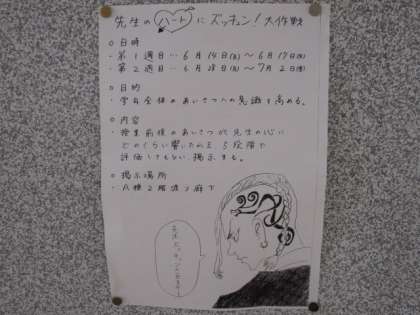 先生のハートにズッキュン!大作戦
○日時
・第1週目…6月14日(月)〜6月17日(木)
・第2週目…6月28日(月)〜7月2日(金)
○目的
・学年全体のあいさつへの意識を高める。
○内容
・授業前後のあいさつが先生の心に
どのくらい響いたのを5段階で
評価してもらい掲示する。
○掲示場所
・A棟2階渡り廊下